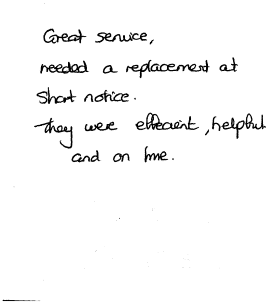 Great service,
needed a replacement at
short notice.
They were efficient, helpful
and on time.